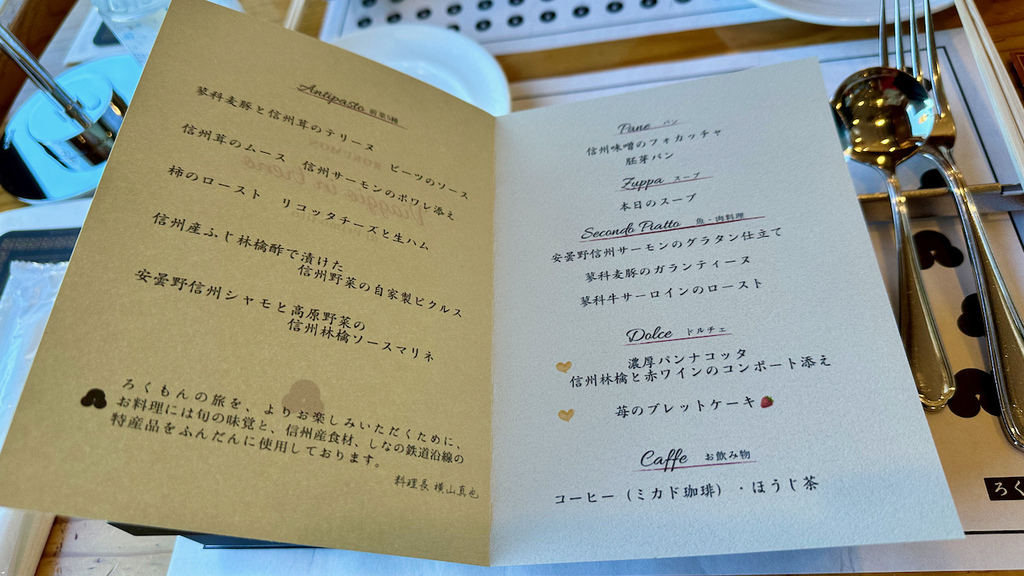 Antipasto 前菜5種
蓼科麦豚と信州茸のテリーヌ ビーツのソース
信州茸のムース 信州サーモンのポワレ添え
柿のロースト リコッタチーズと生ハム
信州産ふじ林檎酢で漬けた
信州野菜の自家製ピクルス
安曇野信州シャモと高原野菜の
信州林檎ソースマリネ
ろくもんの旅を、よりお楽しみいただくために、
お料理には旬の味覚と、信州産食材、しなの鉄道沿線の
特産品をふんだんに使用しております。
料理長 横山真也
Pane パン
信州味噌のフォカッチャ
胚芽パン
Zuppa スープ
本日のスープ
Secondo Piatto 魚・肉料理
安曇野信州サーモンのグラタン仕立て
蓼科麦豚のガランティーヌ
蓼科牛サーロインのロースト
Dolce ドルチェ
濃厚パンナコッタ
信州林檎と赤ワインのコンポート添え
苺のブレットケーキ
Caffe お飲み物
コーヒー（ミカド珈琲）・ほうじ茶
ろく